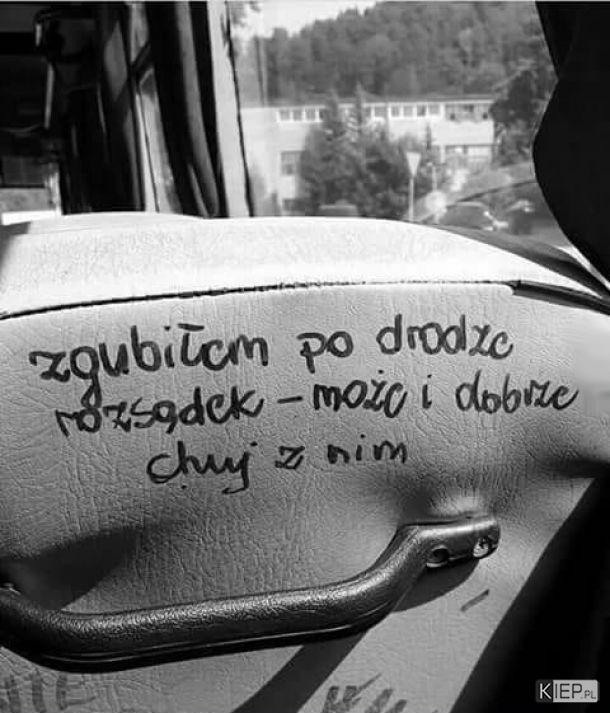 zgubiłem po drodze
rozsądek - może i dobrze
chuj z nim
KIEP.PL